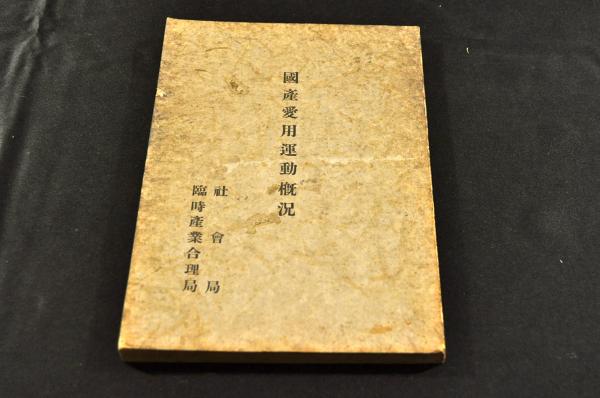 國產愛用運動槪況
社會局
臨時產業合理局